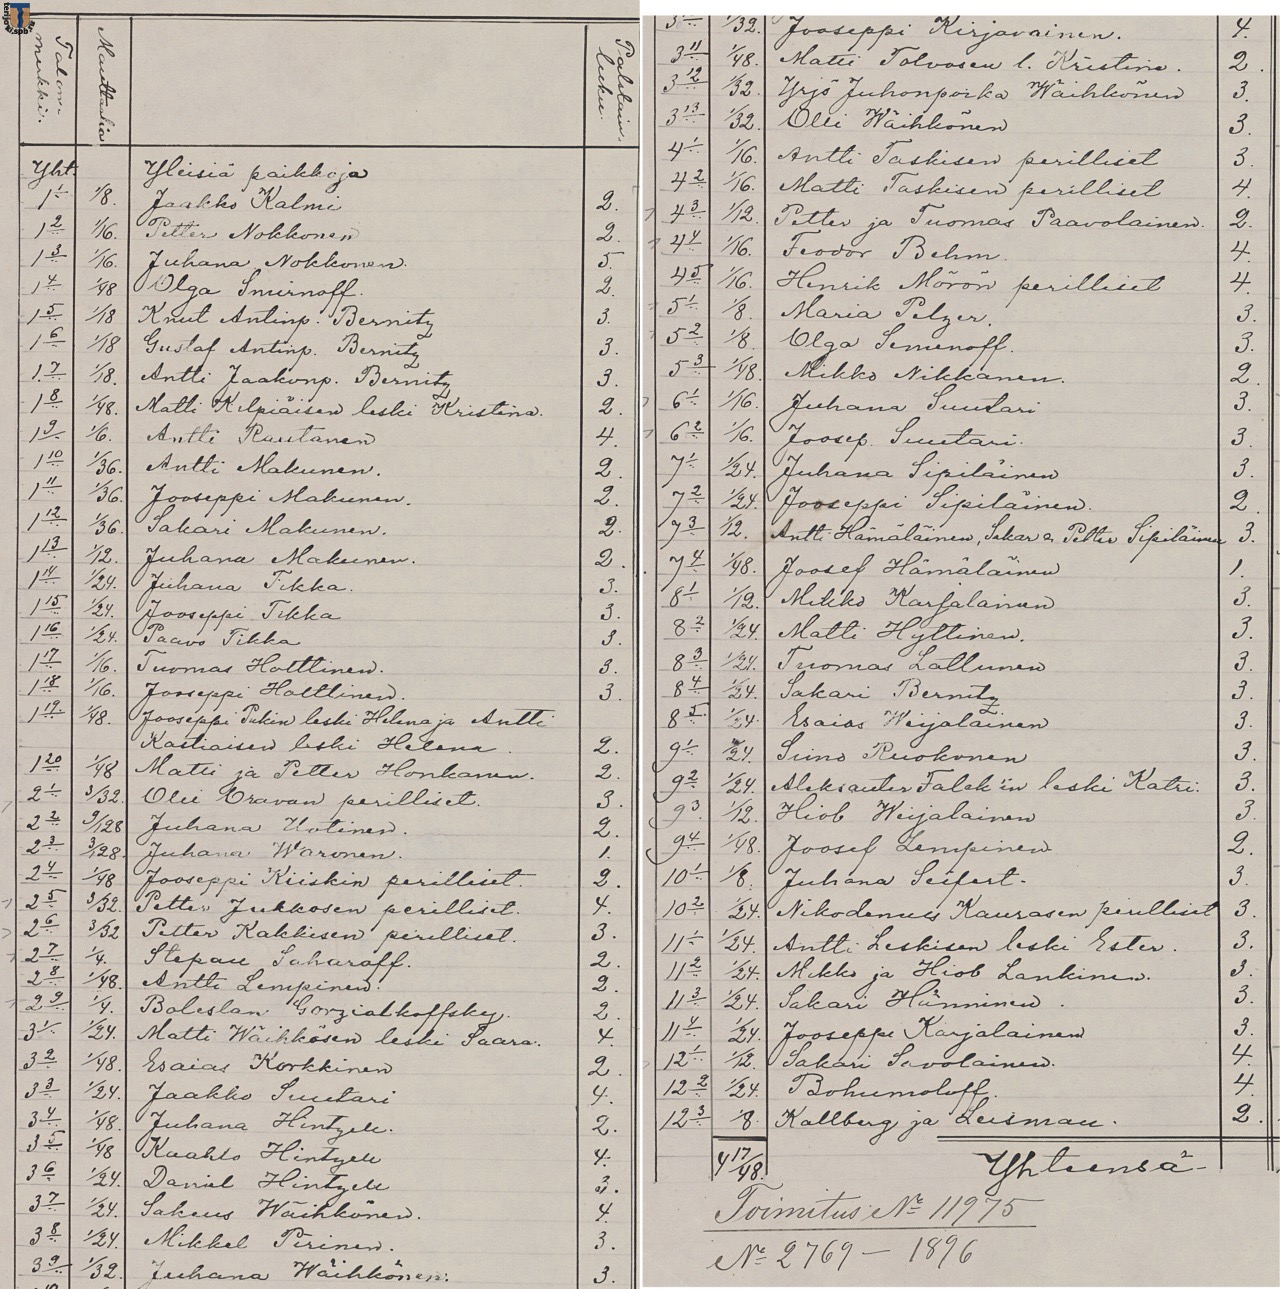 terijoki.spb
Talon merkki.
Manttaalia
Palstain luku.
Yht. Yleisiä paikkoja
1 1 1/8. Jaakko Kalmi 2.
1 2 1/16. Petter Nokkonen 2.
1 3 1/16. Juhana Nokkonen. 5.
1 4 1/48 Olga Smirnoff. 2.
1 5 1/18 Knut Antinp. Bernitz 3.
1 6 1/18 Gustaf Antinp. Bernitz 3.
1 7 1/18. Antti Jaakonp. Bernitz 3.
1 8 1/48. Matti Kelpiäisen leski Kristina. 2.
1 9 1/6. Antti Rautanen 4.
1 10 1/36. Antti Makunen. 2.
1 11 1/36. Jooseppi Makunen. 2.
1 12 1/36. Sakari Makunen. 2.
1 13 1/12. Juhana Makunen. 2.
1 14 1/24. Juhana Tikka. 3.
1 15 1/24. Jooseppi Tikka 3.
1 16 1/24. Paavo Tikka 3.
1 17 1/16. Tuomas Hattinen. 3.
1 18 1/16. Jooseppi Hattinen. 3.
1 19 1/48. Jooseppi Pukin leski Helena ja Antti
Kastiaisen leski Helena. 2.
1 20 1/48 Matti ja Petter Honkanen. 2.
2 1 3/32. Olli Oravan perilliset. 3.
2 2 9/128 Juhana Uotinen. 2.
2 3 3/128. Juhana Waronen. 1.
2 4 1/48 Jooseppi Kiiskin perilliset. 2.
2 5 3/32. Petter Jukkosen perilliset. 4.
2 6 3/32 Petter Kakkisen perilliset. 3.
2 7 1/4. Stepan Saharoff. 2.
2 8 1/48. Antti Lempinen. 2.
2 9 1/4. Boleslan Gorziatkoffsky. 2.
3 1 1/24. Matti Wäihkösen leski Saara. 4.
3 2 1/48. Esaias Korkkinen 2.
3 3 1/24. Jaakko Suutari 4.
3 4 1/48. Juhana Hintzell. 2.
3 5 1/48 Kaahlo Hintzell 4.
3 6 1/24. Daniel Hintzell 3.
3 7 1/24. Sakeus Wäihkönen. 4.
3 8 1/24. Mikkel Pirinen. 3.
3 9 1/32. Juhana Wäihkönen. 3.
1/32. Jooseppi Kirjavainen. 4.
3 11 1/48. Matti Tolvosen l. Kristina. 2.
3 12 1/32. Yrjö Juhonpoika Wäihkönen 3.
3 13 1/32. Olli Wäihkönen 3.
4 1 1/16. Antti Taskisen perilliset 3.
4 2 1/16. Matti Taskisen perilliset 4.
4 3 1/12. Petter ja Tuomas Paavolainen. 2.
4 4 1/16. Feodor Behm. 4.
4 5 1/16. Henrik Mörön perilliset 4.
5 1 1/8. Maria Pelzer. 3.
5 2 1/8. Olga Semenoff. 3.
5 3 1/48. Mikko Nikkanen. 2.
6 1 1/16. Juhana Suutari 3.
6 2 1/16. Joosep. Suutari. 3.
7 1 1/24. Juhana Sipiläinen 3.
7 2 1/24. Jooseppi Sipiläinen. 2.
7 3 1/12. Antti Hämäläinen, Sakar & Petter Sipiläinen 3.
7 4 1/48. Joosef Hämäläinen 1.
8 1 1/12. Mikko Karjalainen 3.
8 2 1/24. Matti Hyttinen. 3.
8 3 1/24. Tuomas Lattunen 3.
8 4 1/24. Sakari Bernitz 3.
8 5 1/24. Esaias Weijalainen 3.
9 1 1/24. Simo Ruokonen 3.
9 2 1/24. Aleksanter Falck'in leski Katri. 3.
9 3 1/12. Hiob Weijalainen 3.
9 4 1/48. Joosef Lempinen 2.
10 1 1/8. Juhana Seifert. 3.
10 2 1/24. Nikodemus Kaurasen perilliset 3.
11 1 1/24. Antti Leskisen leski Ester. 3.
11 2 1/24. Mikko ja Hiob Lankinen. 3.
11 3 1/24. Sakari Hänninen. 3.
11 4 1/24. Jooseppi Karjalainen 3.
12 1 1/12. Sakari Savolainen. 4.
12 2 1/24. Bohumoloff. 4.
12 3 1/8. Kallberg ja Leisman. 2.
4 17/48. Yhteensä
Toimitus No 11975
No 2769 – 1896